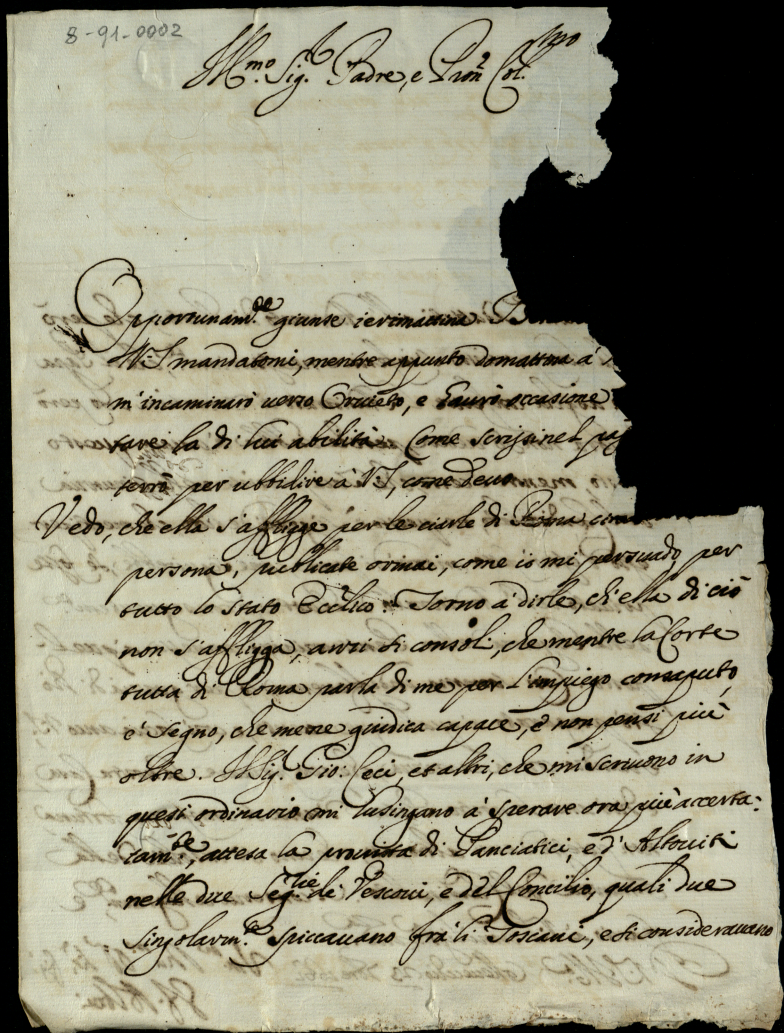 8-91-0002
Ill.mo Sig.r Padre, e Pron. Col.mo
Opportunam.te giunse ierimattina
V.S. mandatomi, mentre appunto domattina à
m'incaminarò uerso Oruieto, e haurò occasione
tare la di lui abilità. Come scrissi nel
terrò per ubbidire à V.S., come deuo
Vedo, che ella s'affligge per le ciarle di Roma
persona, publicate ormai, come io mi persuado, per
tutto lo Stato Eccl.ico. Torno à dirle, ch'ella di ciò
non s'affligga, anzi si consoli, che mentre la Corte
tutta di Roma parla di me per l'impiego consaputo,
è segno, che me ne giudica capace, e non pensi più
oltre. Il Sig.r Gio: Ceci, et altri, che mi scriuono in
quest'ordinario mi lusingano à sperare ora più accerta=
tam.te, attesa la prouista di Panciatici, e d'Altouiti
nelle due Seg.rie de' Vescoui, e del Concilio, quali due
singolarm.te spiccauano frà li Toscani, e si considerauano